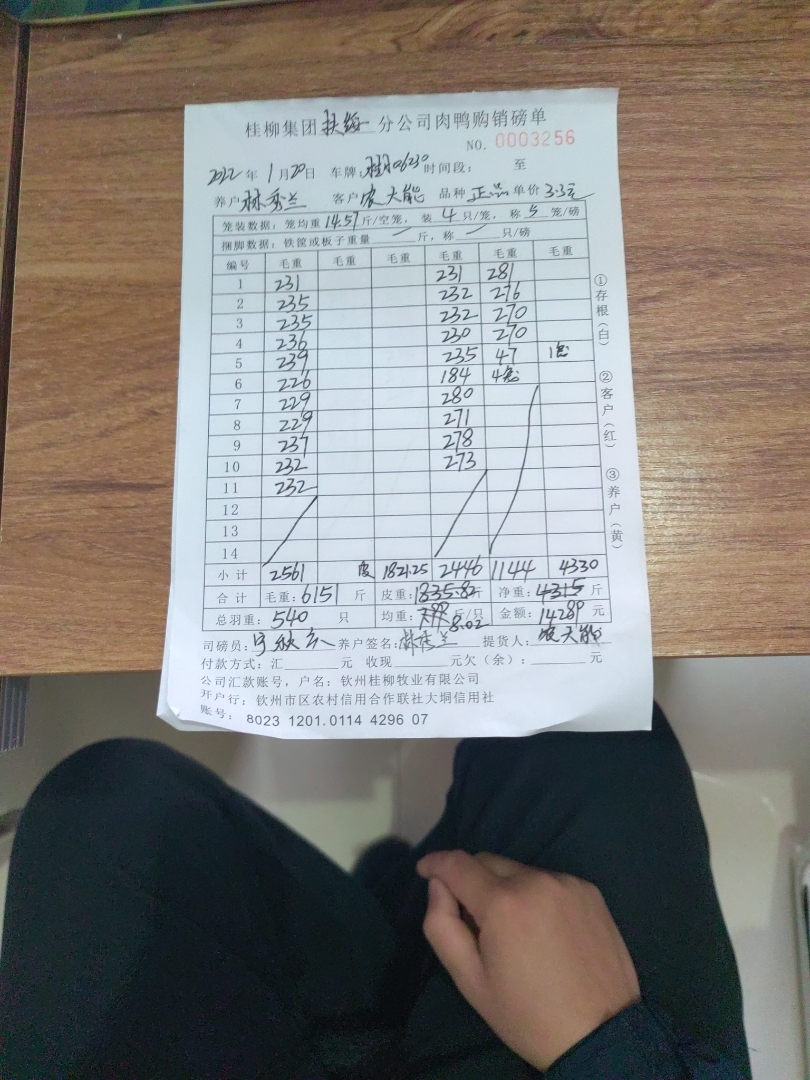 桂柳集团扶绥分公司肉鸭购销磅单
NO. 0003256
2022年1月20日 车牌: 06230 时间段: 至
养户林秀兰 客户农大能 品种正品单价3.3元
笼装数据: 笼均重14.57斤/空笼, 装4只/笼, 称5笼/磅
捆脚数据: 铁筐或板子重量 斤, 称 只/磅
编号 毛重 毛重 毛重 毛重 毛重 毛重
1 231 231 281
2 235 232 276
3 235 232 270
4 236 230 270
5 239 235 47 1笼
6 226 184 4笼
7 229 280
8 229 271
9 237 278
10 232 273
11 232
12
13
14
小计 2561 皮 1821.25 2446 1144 4330
合计 毛重: 6151斤 皮重: 1835.82斤 净重: 4315斤
总羽重: 540 只 均重: 斤/只 8.02 金额: 14289元
司磅员: 养户签名: 林秀兰 提货人: 农大能
付款方式: 汇 元 收现 元欠(余): 元
公司汇款账号, 户名: 钦州桂柳牧业有限公司
开户行: 钦州市区农村信用合作联社大垌信用社
账号: 8023 1201.0114 4296 07
①存根(白)
②客户(红)
③养户(黄)